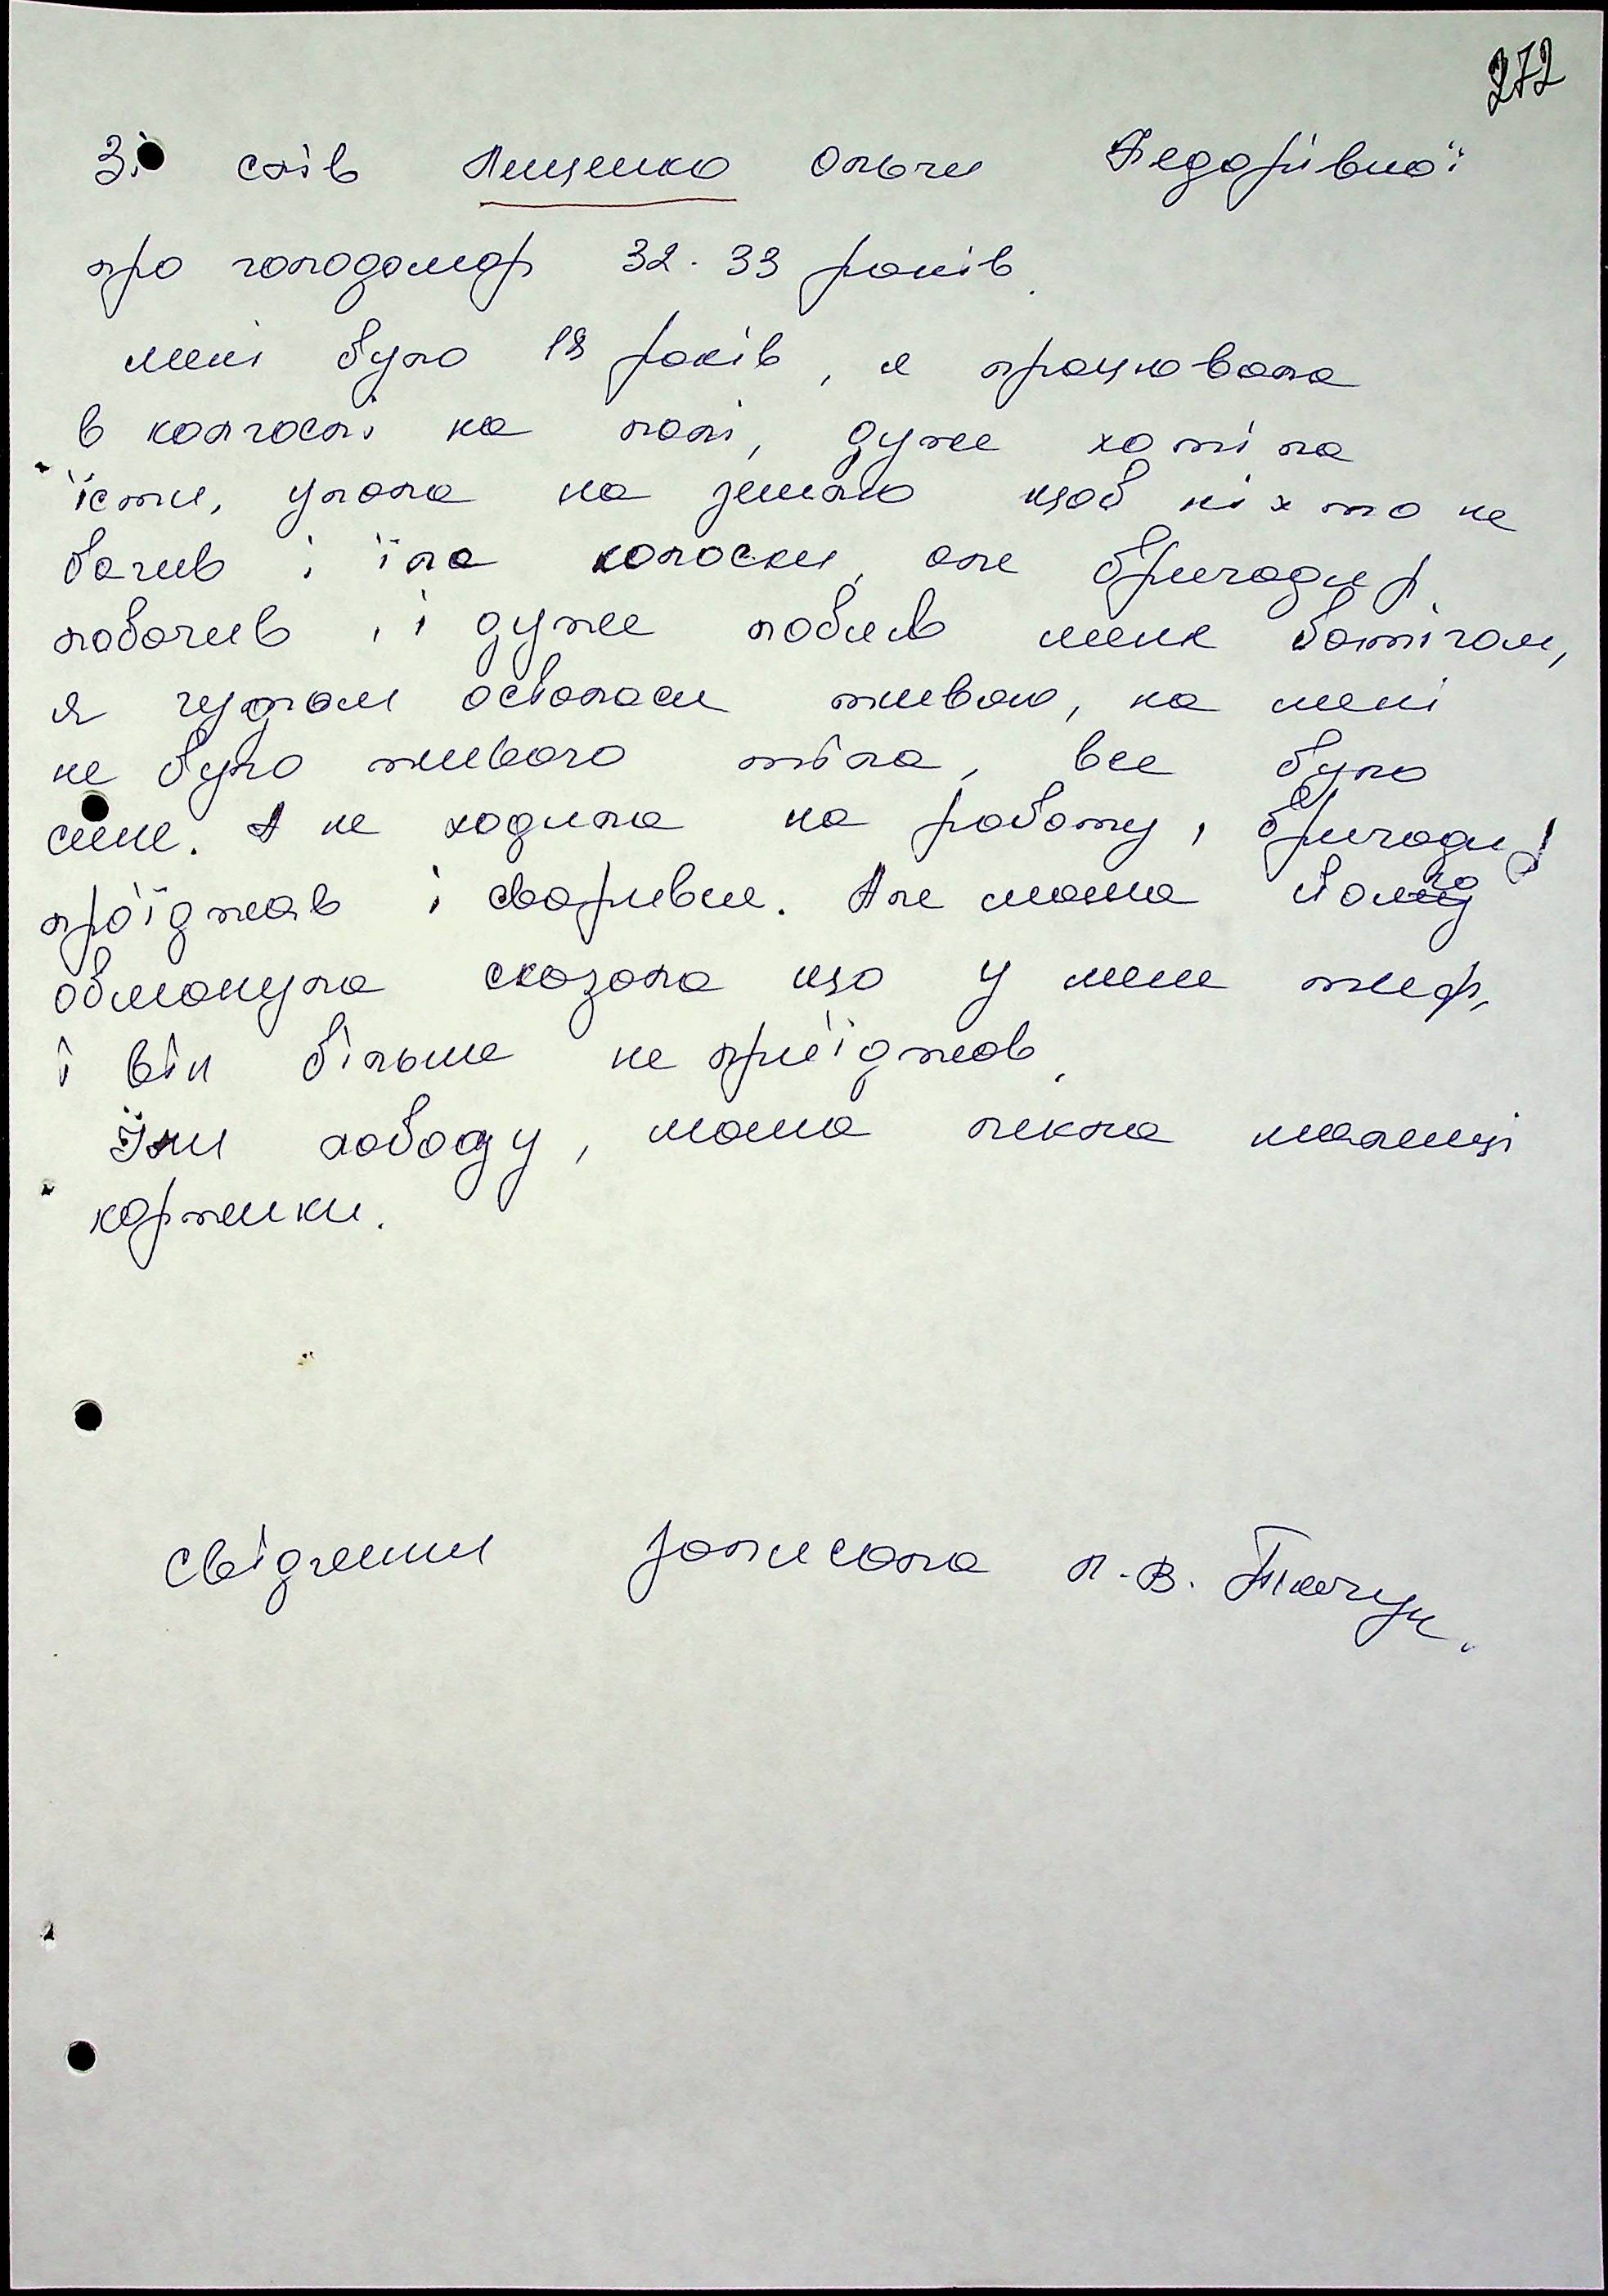 272
Зі слів Лященко Ольги Федорівної
про голодомор 32-33 років.
мені було 18 років, я працювала
в колгоспі на полі, дуже хотіла
їсти, упала на землю щоб ніхто не
бачив і їла колоски, але бригадир
побачив, і дуже побив мене батігом,
я чудом осталася живою, на мені
не було живого тіла, все було
синє. Я не ходила на роботу, бригадир
проїджав і сварився. Але мама його
обманула сказала що у мене тиф,
і він більше не приїджав.
Їли лободу, мама пекла
коржики.
свідчення записала Л.В.